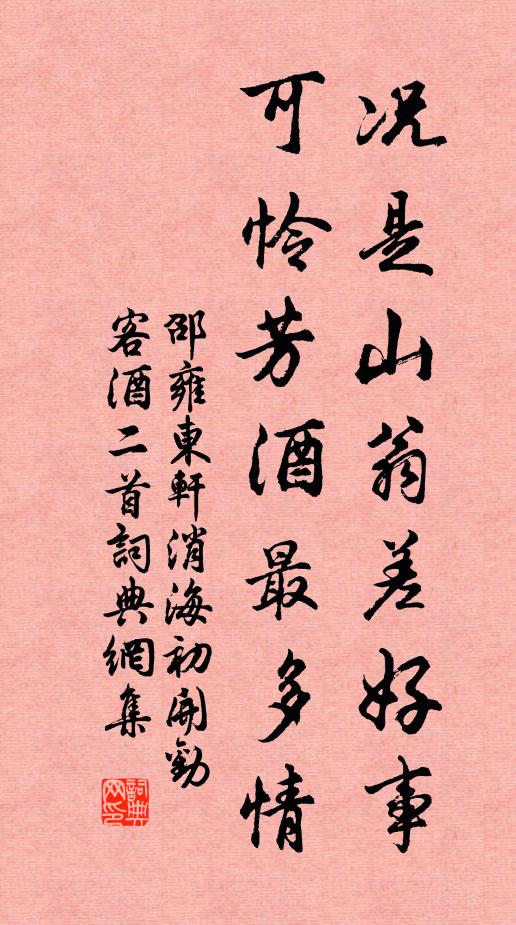 况是山翁差好事
可怜芳酒最多情
邵雍東軒消海初開勸
客酒二首詞典網集
詞典网印